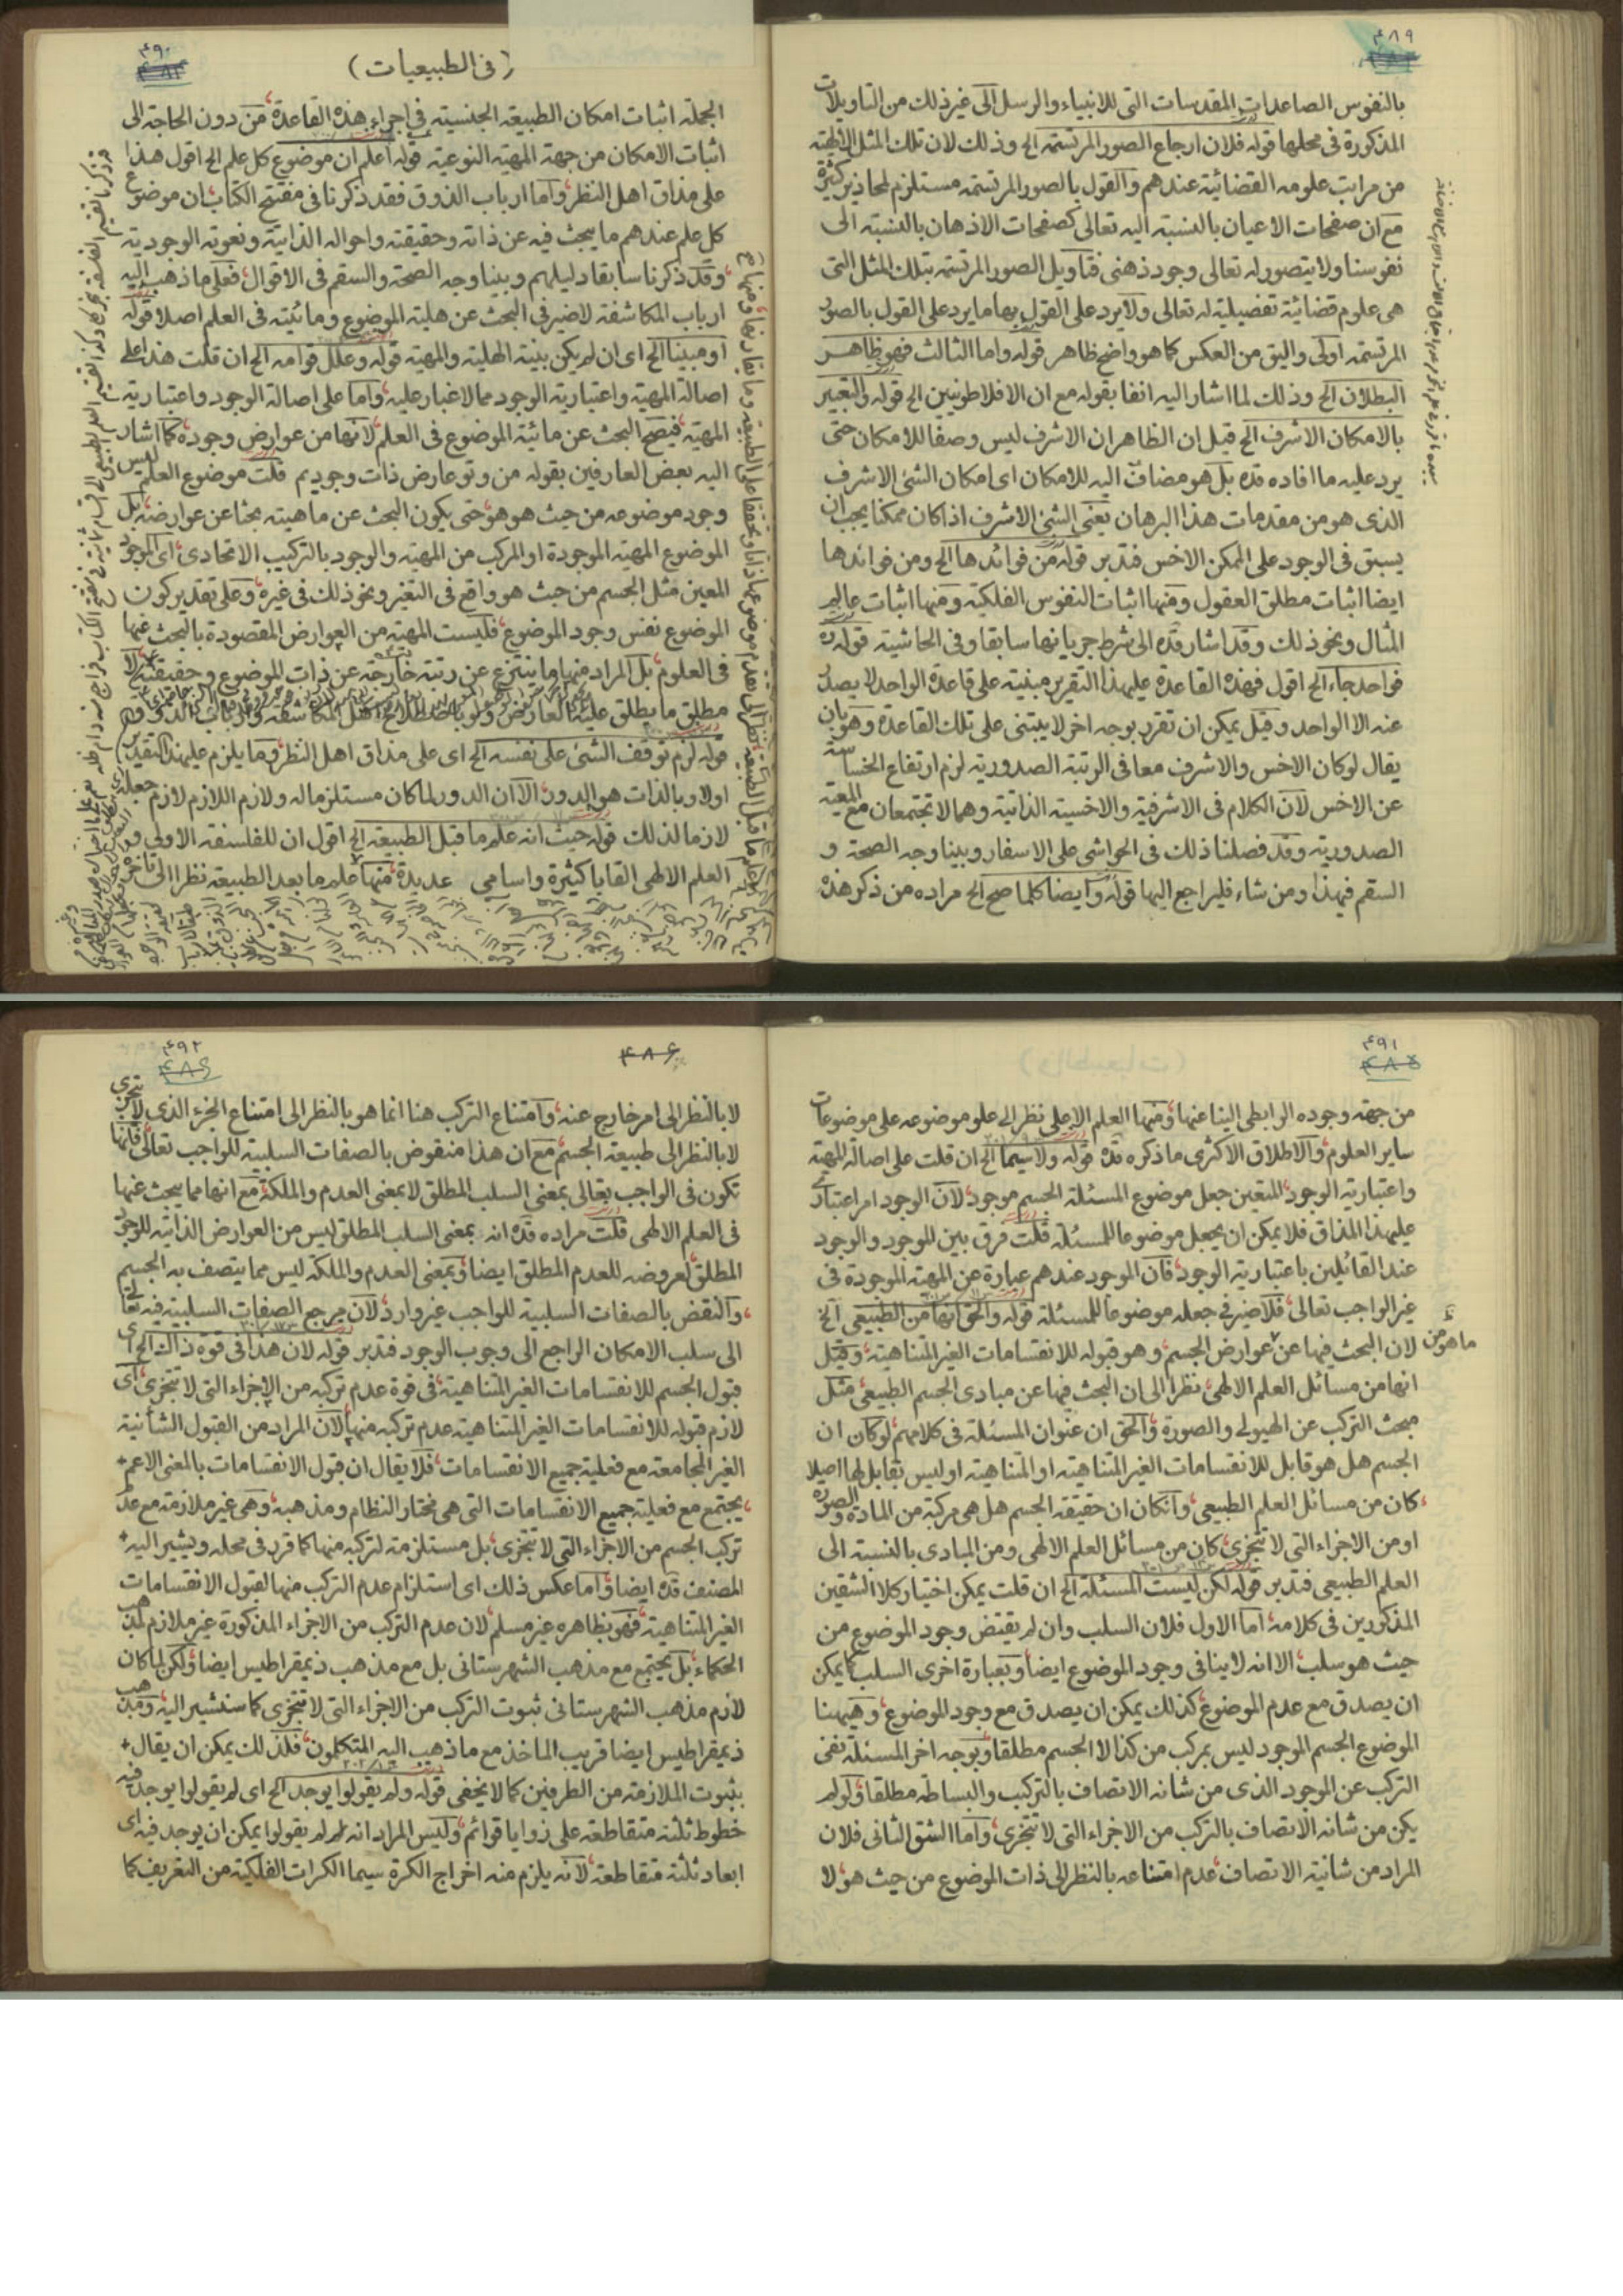 ۴۸۹
بالنفوس الصاعدات المقدسات التی للانبیاء والرسل الی غیر ذلك من التاویلات
المذکورة فی محلها قوله فلان ارجاع الصور المرتسمه الخ وذلك لان تلك المثل الالهیته
من مراتب علومه القضائیة عندهم والقول بالصور المرتسمه مستلزم لمحاذیر کثیرة
مع ان صفحات الاعیان بالنسبته الیه تعالی کصفحات الاذهان بالنسبته الی
نفوسنا ولا یتصور له تعالی وجود ذهنی فتاویل الصور المرتسمه بتلك المثل التی
هی علوم قضائیة تفصیلیة له تعالی ولا یرد علی القول بها ما یرد علی القول بالصور
المرتسمه اولی والیق من العکس کما هو واضح ظاهر قوله واما الثالث فهو ظاهر
البطلان الخ وذلك لما اشار الیه انفا بقوله مع ان الافلاطونیین الخ قوله والتعبیر
بالامکان الاشرف الخ قیل ان الظاهر ان الاشرف لیس وصفا للامکان حتی
یرد علیه ما افاده قده بل هو مضاف الیه للامکان ای امکان الشئ الاشرف
الذی هو من مقدمات هذا البرهان یعنی الشئ الاشرف اذا کان ممکنا یجب ان
یسبق فی الوجود علی الممکن الاخس فتدبر قوله من فوائدها الخ ومن فوائدها
ایضا اثبات مطلق العقول ومنها اثبات النفوس الفلکیته ومنها اثبات عالم
المثال ونحو ذلك وقد اشار قده الی شرط جریانها سابقا وفی الحاشیته قوله ره
فواحد جاء الخ اقول فهذه القاعدة علیهذا التقریر مبنیته علی قاعدة الواحد لا یصدر
عنه الا الواحد وقیل یمکن ان تقرر بوجه اخر لا یبتنی علی تلك القاعدة وهو بان
یقال لو کان الاخس والاشرف معا فی الرتبته الصدوریته لزم ارتفاع الخساسته
عن الاخس لان الکلام فی الاشرفیته والاخسیته الذاتیته وهما لا تجتمعان مع المعیته
الصدوریته وقد فصلنا ذلك فی الحواشی علی الاسفار وبینا وجه الصحته و
السقم فیهذا ومن شاء فلیراجع الیها قوله وایضا کلما صح الخ مراده من ذکر هذه
۴۹۰
(فی الطبیعیات)
الجملته اثبات امکان الطبیعته الجنسیته فی اجراء هذه القاعدة من دون الحاجته الی
اثبات الامکان من جهته المهیته النوعیته قوله اعلم ان موضوع کل علم الخ اقول هذا
علی مذاق اهل النظر واما ارباب الذوق فقد ذکرنا فی مفتتح الکتاب ان موضوع
کل علم عندهم ما یبحث فیه عن ذاته وحقیقته واحواله الذاتیته ونعوته الوجودیته
وقد ذکرنا سابقا دلیلهم وبینا وجه الصحته والسقم فی الاقوال فعلی ما ذهب الیه
ارباب المکاشفته لا ضیر فی البحث عن هلیته الموضوع ومائیته فی العلم اصلا قوله
او مبینا الخ ای ان لم یکن بینته الهلیته والمهیته قوله وعلل قوامه الخ ان قلت هذا علی
اصالته المهیته واعتباریته الوجود مما لا غبار علیه واما علی اصالته الوجود واعتباریته
المهیته فیصح البحث عن مائیته الموضوع فی العلم لانها من عوارض وجوده کما اشار
الیه بعض العارفین بقوله من وتو عارض ذات وجودیم قلت موضوع العلم لیس
وجود موضوعه من حیث هو هو حتی یکون البحث عن ماهیته بحثا عن عوارضه بل
الموضوع المهیته الموجودة او المرکب من المهیته والوجود بالترکیب الاتحادی ای الموجود
المعین مثل الجسم من حیث هو واقع فی التغیر ونحو ذلك فی غیره وعلی تقدیر کون
الموضوع نفس وجود الموضوع فلیست المهیته من العوارض المقصودة بالبحث عنها
فی العلوم بل المراد منها ما ینتزع عن رتبته خارجته عن ذات الموضوع وحقیقته لا
مطلق ما یطلق علیه العارض ولو باصطلاح اهل المکاشفته وارباب الذوق
قوله لزم توقف الشئ علی نفسه الخ ای علی مذاق اهل النظر وما یلزم علیهذا التقدیر
اولا وبالذات هو الدور الا ان الدور لما کان مستلزما له ولازم اللازم لازم جعله
لازما لذلك قوله حیث انه علم ما قبل الطبیعته الخ اقول ان للفلسفته الاولی و
العلم الالهی القابا کثیرة واسامی عدیدة منها علم ما بعد الطبیعته نظرا الی تاخر
۴۹۱
من جهته وجوده الرابطی الینا عنها ومنها العلم الاعلی نظرا الی علو موضوعه علی موضوعات
سایر العلوم والاطلاق الاکثری ما ذکره قده قوله ولا سیما الخ ان قلت علی اصالته المهیته
واعتباریته الوجود المتعین جعل موضوع المسئلته الجسم موجود لان الوجود امر اعتباری
علیهذا المذاق فلا یمکن ان یجعل موضوعا للمسئلته قلت فرق بین الموجود والوجود
عند القائلین باعتباریته الوجود فان الموجود عندهم عبارة عن المهیته الموجودة فی
غیر الواجب تعالی فلا ضیر فی جعله موضوعا للمسئلته قوله والحق انها من الطبیعی الخ
لان البحث فیها عن ما هو من عوارض الجسم وهو قبوله للانقسامات الغیر المتناهیته وقیل
انها من مسائل العلم الالهی نظرا الی ان البحث فیها عن مبادی الجسم الطبیعی مثل
مبحث الترکب عن الهیولی والصورة والحق ان عنوان المسئلته فی کلامهم لو کان ان
الجسم هل هو قابل للانقسامات الغیر المتناهیته او المتناهیته او لیس بقابل لها اصلا
کان من مسائل العلم الطبیعی وان کان ان حقیقته الجسم هل هی مرکبته من المادة والصورة
او من الاجزاء التی لا تتجزی کان من مسائل العلم الالهی ومن المبادی بالنسبته الی
العلم الطبیعی فتدبر قوله لکن لیست المسئلته الخ ان قلت یمکن اختیار کلا الشقین
المذکورین فی کلامه اما الاول فلان السلب وان لم یقتض وجود الموضوع من
حیث هو سلب الا انه لا ینافی وجود الموضوع ایضا وبعبارة اخری السلب کما یمکن
ان یصدق مع عدم الموضوع کذلك یمکن ان یصدق مع وجود الموضوع وهیهنا
الموضوع الجسم الموجود لیس بمرکب من کذا لا الجسم مطلقا وبوجه اخر المسئلته نفی
الترکب عن الموجود الذی من شانه الاتصاف بالترکیب والبساطته مطلقا ولو لم
یکن من شانه الاتصاف بالترکب من الاجزاء التی لا تتجزی واما الشق الثانی فلان
المراد من شانیته الاتصاف عدم امتناعه بالنظر الی ذات الموضوع من حیث هو لا
۴۹۲
۴۸۶
لا بالنظر الی امر خارج عنه وامتناع الترکب هنا انما هو بالنظر الی امتناع الجزء الذی لا یتجزی
لا بالنظر الی طبیعته الجسم مع ان هذا منقوض بالصفات السلبیته للواجب تعالی فانها
تکون فی الواجب تعالی بمعنی السلب المطلق لا بمعنی العدم والملکته مع انها مما یبحث عنها
فی العلم الالهی قلت مراده قده انه بمعنی السلب المطلق لیس من العوارض الذاتیته للوجود
المطلق لعروضه للعدم المطلق ایضا وبمعنی العدم والملکته لیس مما یتصف به الجسم
والنقض بالصفات السلبیته للواجب غیر وارد لان مرجع الصفات السلبیته فیه تعالی
الی سلب الامکان الراجع الی وجوب الوجود فتدبر قوله لان هذا فی قوة ذاك الخ ای
قبول الجسم للانقسامات الغیر المتناهیته فی قوة عدم ترکبه من الاجزاء التی لا تتجزی ای
لازم قبوله للانقسامات الغیر المتناهیته عدم ترکبه منها لان المراد من القبول الشأنیته
الغیر المجامعته مع فعلیته جمیع الانقسامات فلا یقال ان قبول الانقسامات بالمعنی الاعم
یجتمع مع فعلیته جمیع الانقسامات التی هی مختار النظام ومذهبه وهی غیر ملازمته مع عدم
ترکب الجسم من الاجزاء التی لا تتجزی بل مستلزمته لترکبه منها کما قرر فی محله ویشیر الیه
المصنف قده ایضا واما عکس ذلك ای استلزام عدم الترکب منها لقبول الانقسامات
الغیر المتناهیته فهو بظاهره غیر مسلم لان عدم الترکب من الاجزاء المذکورة غیر ملازم لمذهب
الحکماء بل یجتمع مع مذهب الشهرستانی بل مع مذهب ذیمقراطیس ایضا ولکن لما کان
لازم مذهب الشهرستانی ثبوت الترکب من الاجزاء التی لا تتجزی کما سنشیر الیه ومذهب
ذیمقراطیس ایضا قریب الماخذ مع ما ذهب الیه المتکلمون فلذلك یمکن ان یقال
بثبوت الملازمته من الطرفین کما لا یخفی قوله ولم یقولوا یوجد الخ ای لم یقولوا یوجد فیه
خطوط ثلثته متقاطعته علی زوایا قوائم ولیس المراد انه لم یقولوا یمکن ان یوجد فیه ای
ابعاد ثلثته متقاطعته لانه یلزم منه اخراج الکرة سیما الکرات الفلکیته من التعریف کما